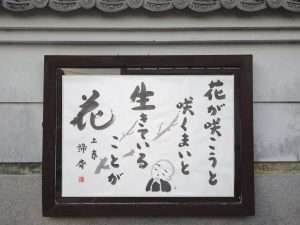 花が咲こうと
咲くまいと
生きている
ことが
花